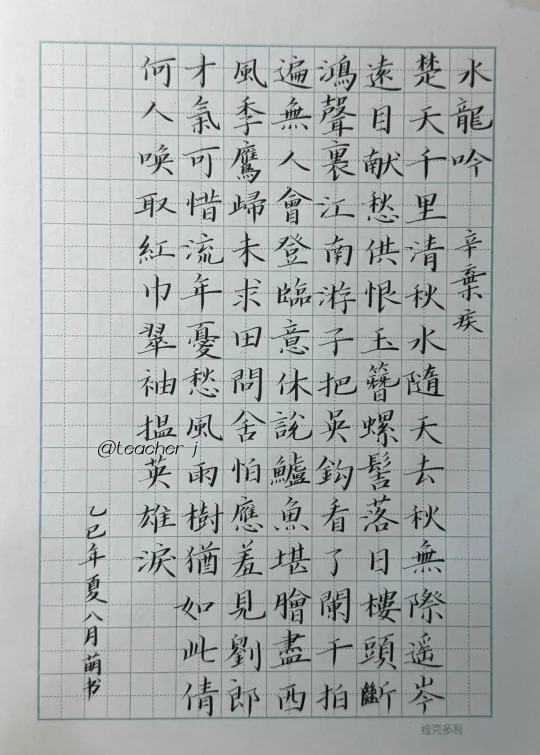 水龍吟 辛棄疾
楚天千里清秋水隨天去秋無際遥岑
遠目献愁供恨玉簪螺髻落日樓頭斷
鴻聲裏江南游子把吳鈎看了闌干拍
遍無人會登臨意休說鱸魚堪膾盡西
風季鷹歸未求田問舍怕應羞見劉郎
才氣可惜流年憂愁風雨樹猶如此倩
何人喚取紅巾翠袖搵英雄淚
乙巳年夏八月萌书
@teacher j
维克多利